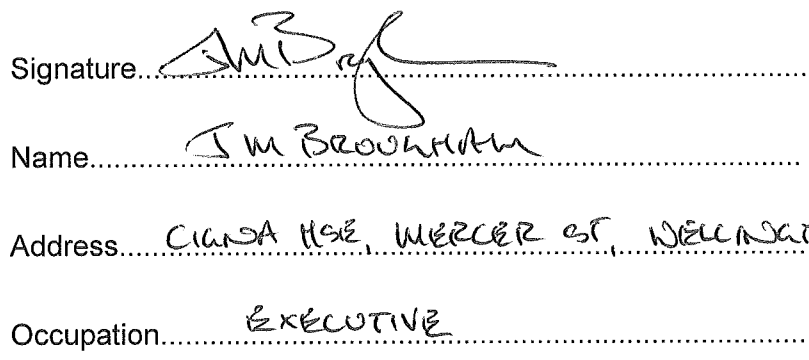 Signature
Name J M BROUGHAM
Address CIGNA HSE, MERCER ST, WELLINGT
Occupation EXECUTIVE